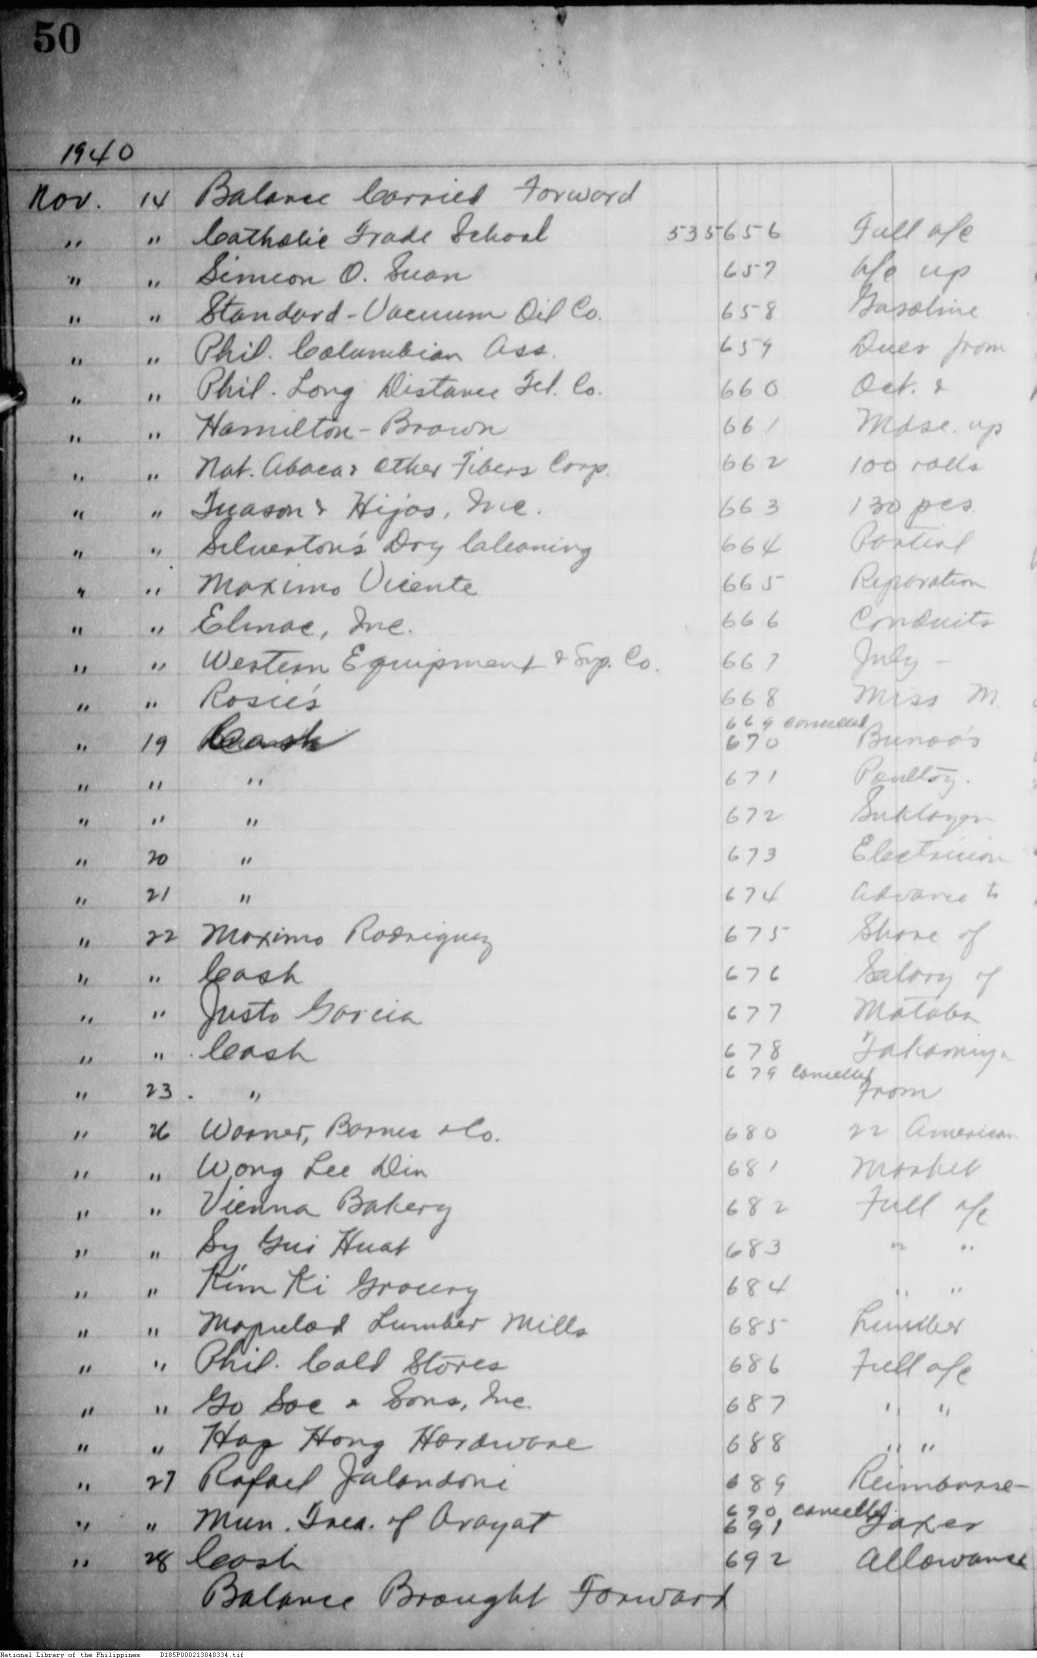 50
1940
Nov. 14 Balance Carried Forward
" " Catholic Trade School 535656 Full a/c
" " Simeon O. Suan 657 a/c up
" " Standard-Vacuum Oil Co. 658 Gasoline
" " Phil. Columbian Ass. 659 Dues from
" " Phil. Long Distance Tel. Co. 660 Oct. &
" " Hamilton-Brown 661 Mdse. up
" " Nat. Abaca & Other Fibers Corp. 662 100 rolls
" " Tuason & Hijos, Inc. 663 130 pcs.
" " Silverton's Dry Cleaning 664 Partial
" " Maximo Vicente 665 Reparation
" " Elmac, Inc. 666 Conduits
" " Western Equipment & Sup. Co. 667 July -
" " Rosie's 668 Miss M.
669 Cancelled
" 19 Cash 670 Bunao's
" " " 671 Poultry.
" " " 672
" 20 " 673 Electrician
" 21 " 674 Advance to
" 22 Maximo Rodriguez 675 Share of
" " Cash 676 Salary of
" " Justo Garcia 677 Mataba
" " Cash 678
679 Cancelled
" 23. " From
" 26 Warner, Barnes & Co. 680 22 American
" " Wong Lee Din 681 Market
" " Vienna Bakery 682 Full a/c
" " Sy Gui Huat 683 " "
" " Kim Ki Grocery 684 " "
" " Mapulad Lumber Mills 685 Lumber
" " Phil. Cold Stores 686 Full a/c
" " Go Soc & Sons, Inc. 687 " "
" " Hap Hong Hardware 688 " "
" 27 Rafael Jalandoni 689 Reimburse-
690 Cancelled
" " Mun. Trea. of Arayat 691 Taxes
" 28 Cash 692 Allowance
Balance Brought Forward
National Library of the Philippines D185P000213040334.tif